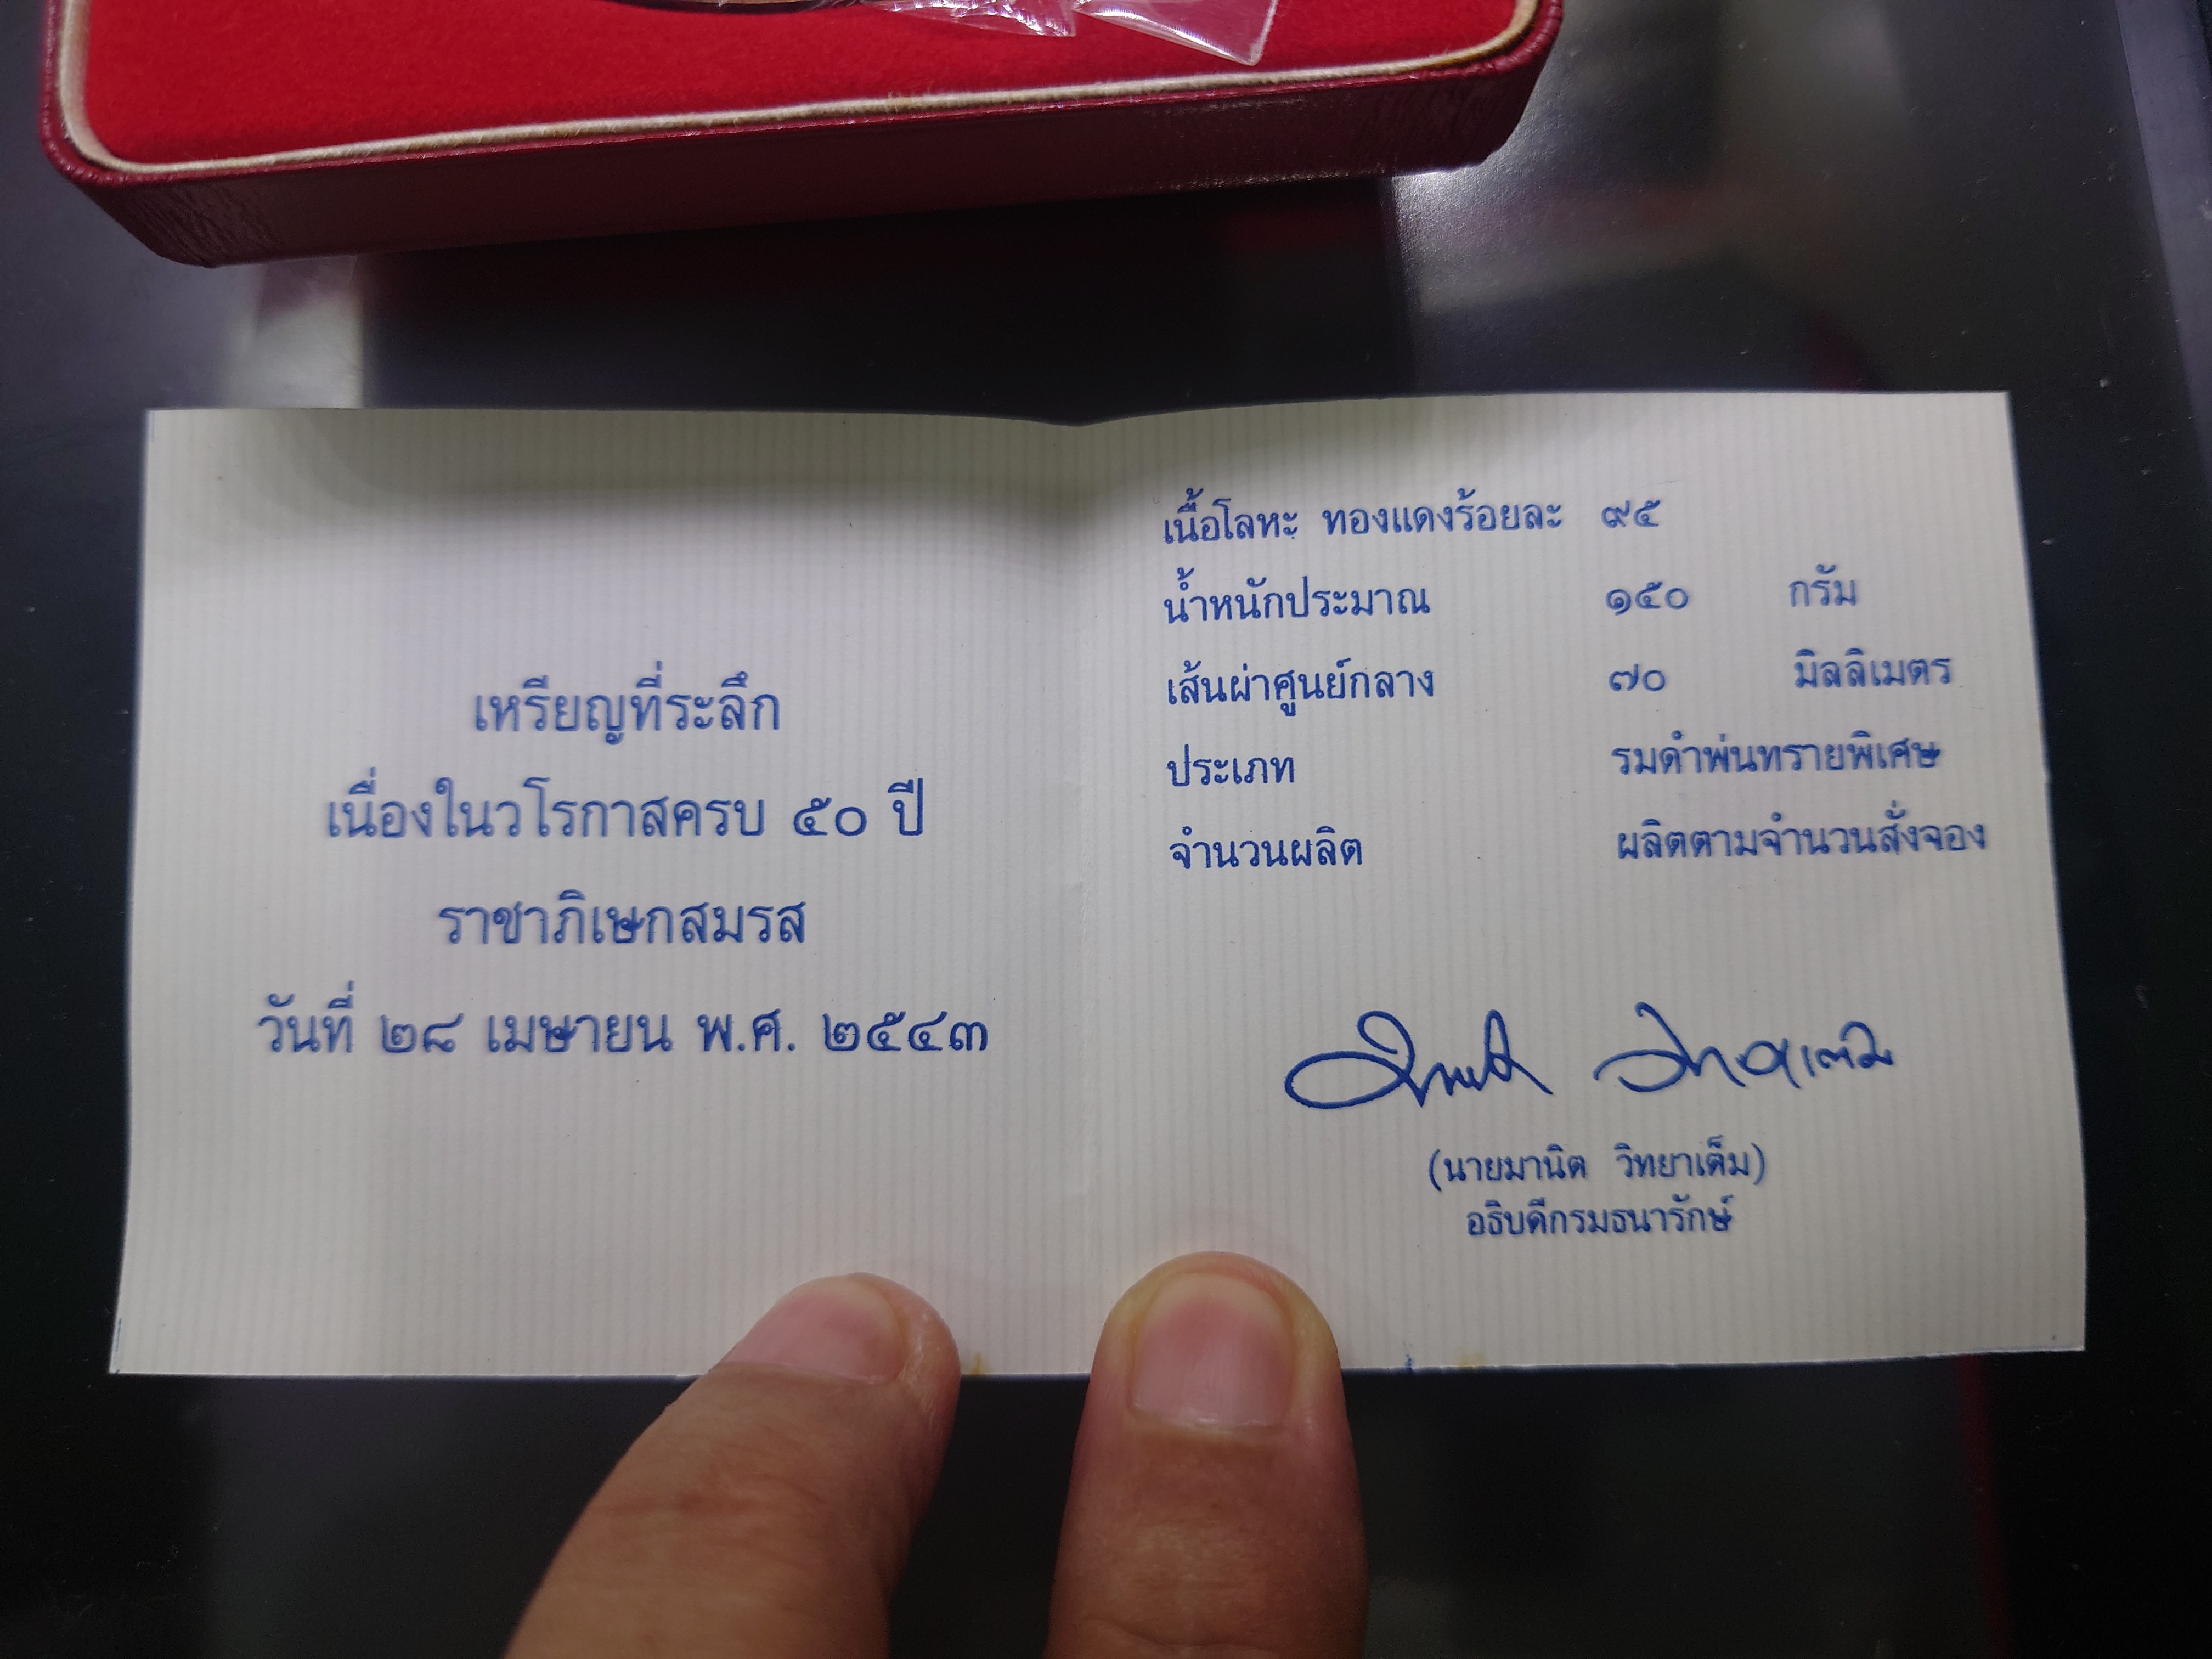 เหรียญที่ระลึก
เนื่องในวโรกาสครบ ๕๐ ปี
ราชาภิเษกสมรส
วันที่ ๒๘ เมษายน พ.ศ. ๒๕๔๓
เนื้อโลหะ ทองแดงร้อยละ ๙๕
น้ำหนักประมาณ ๑๕๐ กรัม
เส้นผ่าศูนย์กลาง ๗๐ มิลลิเมตร
ประเภท รมดำพ่นทรายพิเศษ
จำนวนผลิต ผลิตตามจำนวนสั่งจอง
(นายมานิต วิทยาเต็ม)
อธิบดีกรมธนารักษ์